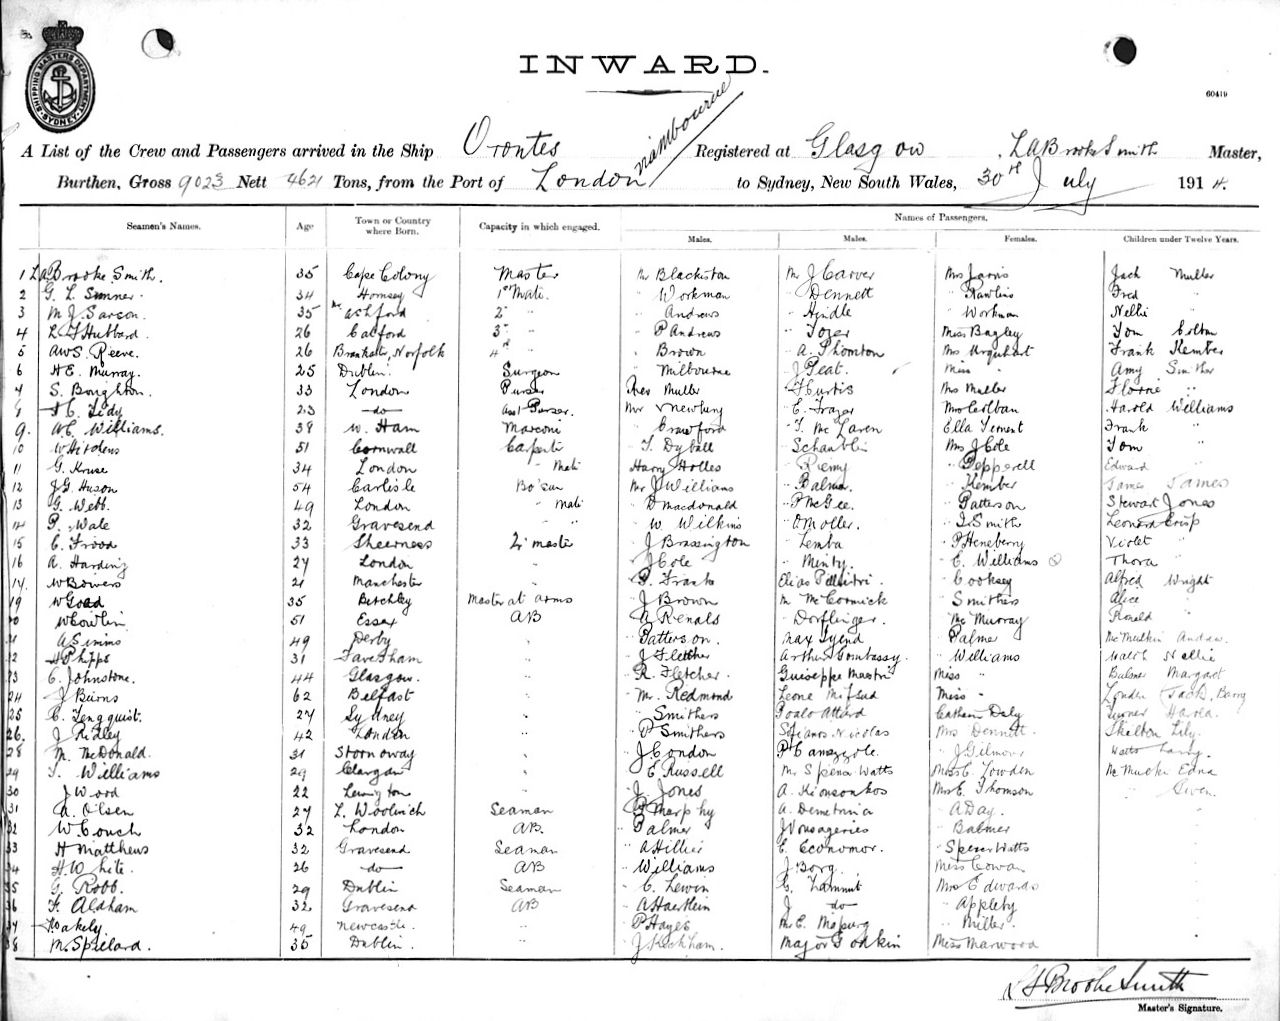 SHIPPING MASTERS DEPARTMENT SYDNEY
INWARD.
60419
A List of the Crew and Passengers arrived in the Ship Orontes Registered at Glasgow, L A Brooke Smith Master,
Burthen, Gross 9023 Nett 4621 Tons, from the Port of London to Sydney, New South Wales, 30th July 1914.
Names of Passengers.
Seamen's Names. Age Town or Country where Born. Capacity in which engaged. Males. Males. Females. Children under Twelve Years.
1 L A Brooke Smith. 35 Cape Colony Master Mr Blackiston Mr J Carver Mrs Jarvis Jack Muller
2 G. L. Sumner. 34 Hornsey 1st Mate. " Workman " Dennett " Rawlins Fred "
3 M J Sarson. 35 Ashford 2 " " Andrews " Hindle " Workman Nellie "
4 L F Hubbard. 26 Catford 3 " " P Andrews " Tozer Miss Bagley Tom Colban
5 AWS. Reeve. 26 Norfolk 4th " " Brown " A. Thomton Mrs Urquhart Frank Kember
6 H E. Murray. 25 Dublin Surgeon " Milbourne " J Peat. Miss " Amy Smither
S. Boughton. 33 London Purser Rev Muller " F Curtis Mrs Muller Florrie "
Tidy 23 -do- Asst Purser. Mr Newbury " E. Frazer Mrs Colban Harold Williams
9. W C. Williams. 38 W. Ham Marconi " Crawford " T. Mc Laren Ella Yoment Frank "
10 51 Cornwall Carpentr " T. Dyball " Schaublin Mrs J Cole Tom "
11 G. Kruse 34 London " Mate Harry Holles " Remy " Pepperell Edward "
12 J G. Huson 54 Carlisle Bo'sun Mr J Williams " Balmer. " Kember James James
13 G. Webb. 49 London " Mate " D Macdonald " P McGee. " Patterson Stewart Jones
14 P. Wale 32 Gravesend " " " W Wilkins " O Moller. " J. Smith Leonard Crisp
15 C. Frood 33 Sheerness Qr master " J Brassington " Lemba " P Heneberry Violet "
16 A. Harding 27 London " " J Cole " Minty. " E. Williams Thora "
17. W Bowers 21 Manchester " " P. Frank Elias " Cooksey Alfred Wright
19 W Goad 35 Master at arms " J Brown " M McCormick " Smithers Alice "
W Cowlin. 51 Essex AB " A Renals " Dorflinger. " Mc Murray Ronald "
A Simms 49 Derby " " Patterson. " Max " Palmer
H Phipps 31 Faversham " " J Fletcher " Arthur " Williams Nellie
C. Johnstone. 44 Glasgow. " " R. Fletcher. Guiseppe Miss " Balmer Margaret
24 J Burns 62 Belfast " " Mr. Redmond Leone Mifsud Miss " Jack, Barry
25 C. Tengquist. 27 Sydney " " Smithers Paolo Attard Cathern Daly Turner Harold.
26. J Ridley 42 London " " P Smithers Nicolas Mrs Dennett Skelton Lily.
28 M. McDonald. 31 Stornoway " " J London " J Gilmour Watts Harry.
29 T. Williams 29 Glasgow " " E Russell Mr Spencer Watts Miss E. Lowden Edna
30 J Wood 22 " " J. Jones Mrs E. Thomson " Gwen.
31 A. Olsen 27 E. Woolwich Seaman " P Murphy " A. Demetria " A Day.
32 W Couch 32 London AB. " Palmer " J " Balmer
33 H Matthews 32 Gravesend Seaman " A Hillier " E. Economor. " Spencer Watts
34 H. White. 26 -do- AB " Williams " J Borg. Miss Cowan
35 G. Robb. 29 Dublin Seaman " C. Lewin " C. Zammit Mrs Edwards
36 F. Aldham 32 Gravesend AB " A Haertlein " J do " Appleby
37 Oakely. 49 Newcastle. " " P Hayes Mr E. " Miller.
38 M. Spillard. 35 Dublin. " " J Kickham. Major Godkin Miss Marwood
L A Brooke Smith
Master's Signature.